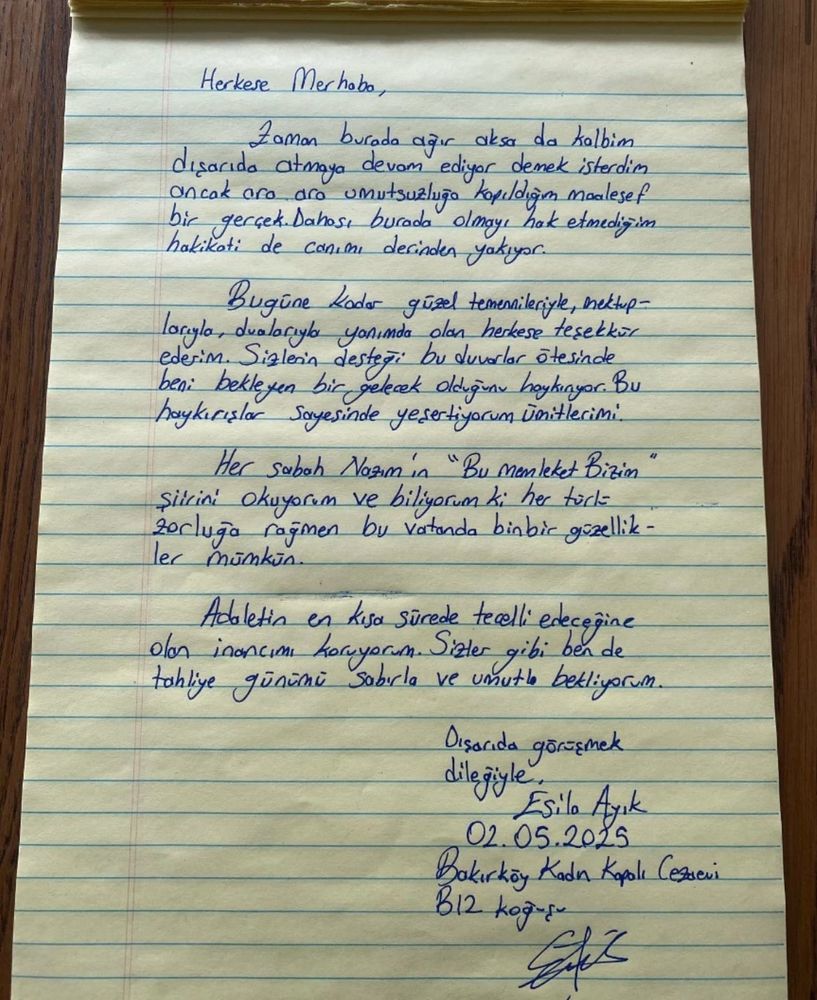 Herkese Merhaba,
Zaman burada ağır aksa da kalbim
dışarıda atmaya devam ediyor demek isterdim
ancak ara ara umutsuzluğa kapıldığım maalesef
bir gerçek. Dahası burada olmayı hak etmediğim
hakikati de canımı derinden yakıyor.
Bugüne kadar güzel temennileriyle, mektup-
larıyla, dualarıyla yanımda olan herkese teşekkür
ederim. Sizlerin desteği bu duvarlar ötesinde
beni bekleyen bir gelecek olduğunu haykırıyor. Bu
haykırışlar sayesinde yeşertiyorum ümitlerimi.
Her sabah Nazım'ın "Bu memleket Bizim"
şiirini okuyorum ve biliyorum ki her türlü
zorluğa rağmen bu vatanda binbir güzellik-
ler mümkün.
Adaletin en kısa sürede tecelli edeceğine
olan inancımı koruyorum. Sizler gibi ben de
tahliye günümü sabırla ve umutla bekliyorum.
Dışarıda görüşmek
dileğiyle,
Esila Ayık
02.05.2025
Bakırköy Kadın Kapalı Cezaevi
B12 koğuşu